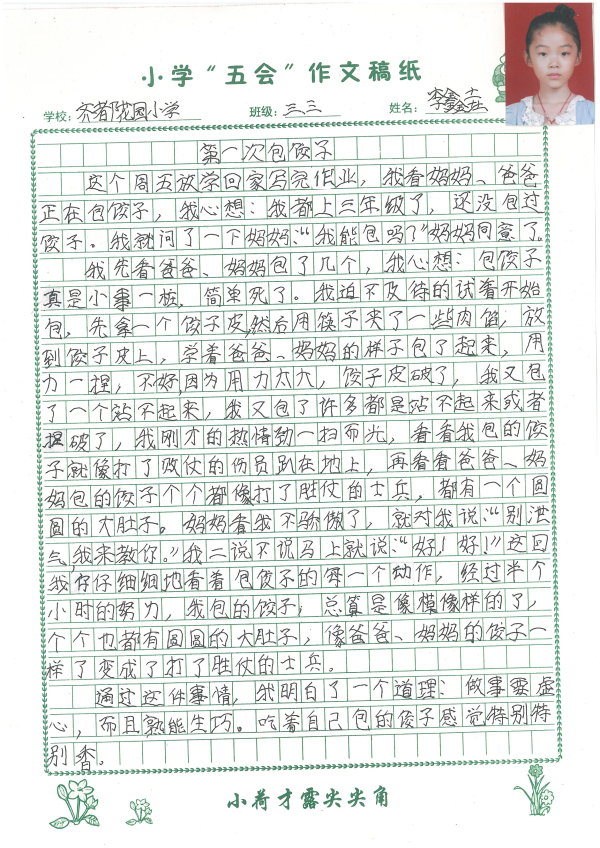 小学“五会”作文稿纸
学校：齐都陇园小学 班级：三三 姓名：李鑫
第一次包饺子
这个周五放学回家写完作业，我看妈妈、爸爸
正在包饺子，我心想：我都上三年级了，还没包过
饺子。我就问了一下妈妈：“我能包吗？”妈妈同意了。
我先看爸爸、妈妈包了几个，我心想：包饺子
真是小事一桩，简单死了。我迫不及待的试着开始
包，先拿一个饺子皮，然后用筷子夹了一些肉馅，放
到饺子皮上，学着爸爸、妈妈的样子包了起来，用
力一捏，不好，因为用力太大，饺子皮破了，我又包
了一个站不起来，我又包了许多都是站不起来或者
捏破了，我刚才的热情劲一扫而光，看看我包的饺
子就像打了败仗的伤员趴在地上，再看看爸爸、妈
妈包的饺子个个都像打了胜仗的士兵，都有一个圆
圆的大肚子。妈妈看我不骄傲了，就对我说：“别泄
气，我来教你。”我二说不说马上就说：“好！好！”这回
我仔仔细细地看着包饺子的每一个动作，经过半个
小时的努力，我包的饺子，总算是像模像样的了，
个个也都有圆圆的大肚子，像爸爸、妈妈的饺子一
样了变成了打了胜仗的士兵。
通过这件事情，我明白了一个道理：做事要虚
心，而且熟能生巧。吃着自己包的饺子感觉特别特
别香。
小荷才露尖尖角